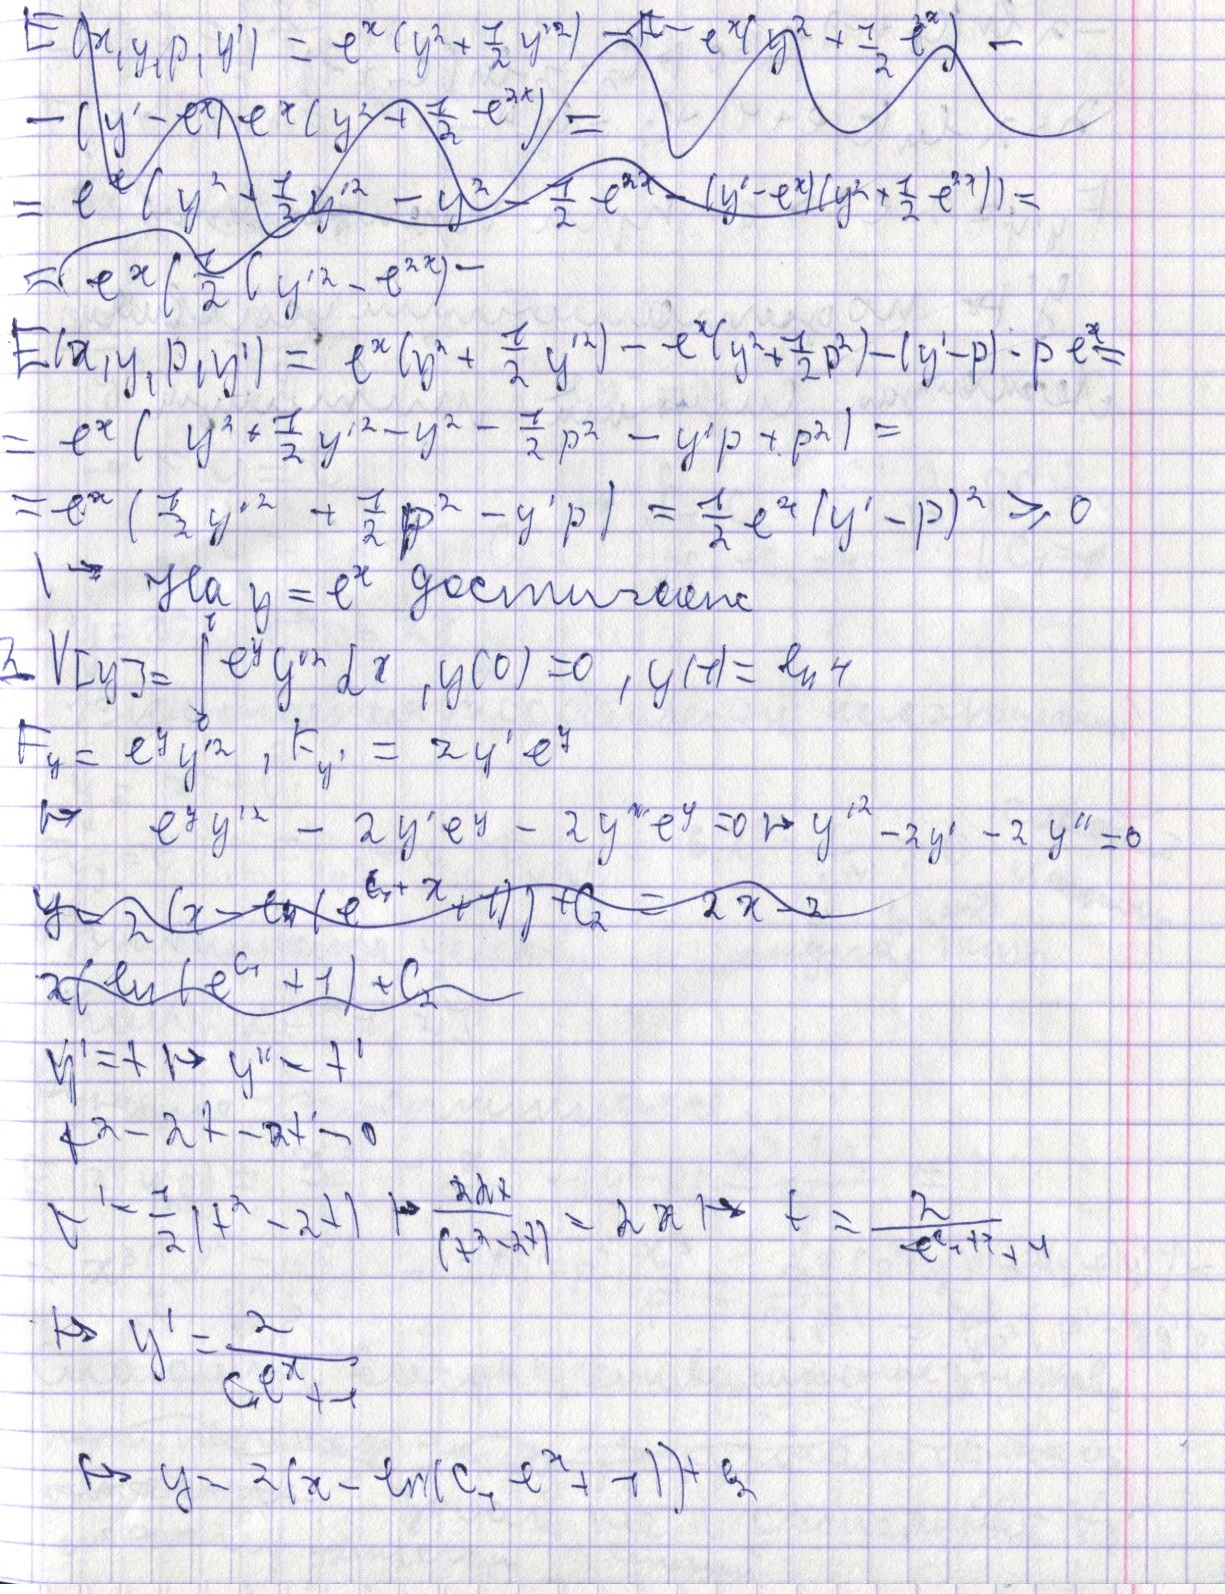 E(x,y,p,y') = e^x(y^2+1/2 y'^2) - e^x(y^2+1/2 e^2x) -
-(y'-e^x)e^x(y^2+1/2 e^2x) =
= e^x(y^2+1/2 y'^2 - y^2 - 1/2 e^2x - (y'-e^x)(y^2+1/2 e^2x)) =
= e^x(1/2(y'^2-e^2x) -
E(x,y,p,y') = e^x(y^2+1/2 y'^2) - e^x(y^2+1/2 p^2) - (y'-p)·p e^x =
= e^x(y^2+1/2 y'^2 - y^2 - 1/2 p^2 - y'p + p^2) =
= e^x(1/2 y'^2 + 1/2 p^2 - y'p) = 1/2 e^x(y'-p)^2 ≥ 0
↦ На y = e^x
V[y] = ∫_0^1 e^y y'^2 dx, y(0)=0, y(1)= ln 4
F_y = e^y y'^2, F_y' = 2y' e^y
↦ e^y y'^2 - 2y'e^y - 2y''e^y = 0 ↦ y'^2 - 2y' - 2y'' = 0
y = 2(x - ln(e^(C_1+x)+1)) + C_2 = 2x - 2
x(ln(e^C_1+1)+C_2
y' = t ↦ y'' = t'
t^2 - 2t - 2t' = 0
t' = 1/2(t^2-2t) ↦ 2dt/(t^2-2t) = 2x ↦ t = 2/(e^(C_1+x)+1)
↦ y' = 2/(C_1e^x+1)
↦ y = 2(x - ln(C_1 e^x+1)) + C_2